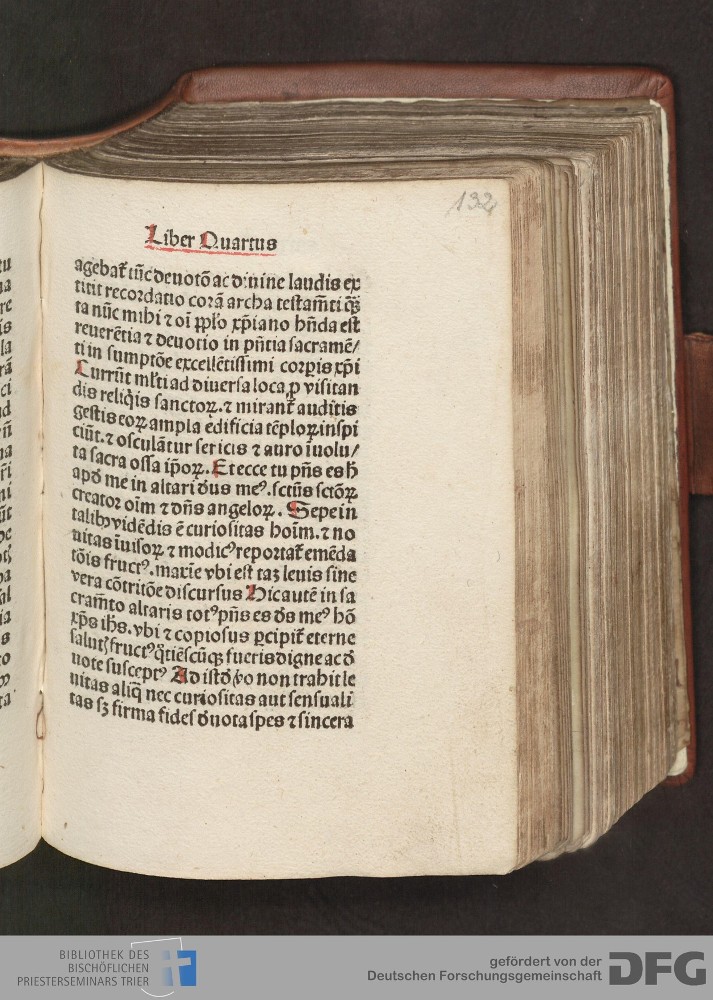 132
Liber Quartus
agebat᷑ tūc deuotō ac diuine laudis ex
titit recordatio corā archa testam̄ti qꝫ
ta nūc mihi ⁊ oī ppl̄o xp̄iano hn̄da est
reuerētia ⁊ deuotio in pn̄tia sacramē/
ti in sumptōe excellētissimi corꝑis xp̄i
Currūt ml̄ti ad diuersa loca ꝓ visitan
dis reliq̄is sanctoꝝ. ⁊ mirant᷑ auditis
gestis eoꝝ ampla edificia tēploꝝ inspi
ciūt. ⁊ osculātur sericis ⁊ auro īuolu/
ta sacra ossa ip̄oꝝ. Et ecce tu pn̄s es h̄
apd̄ me in altari d̄us meꝰ. sctūs sctōꝝ
creator oīm ⁊ dn̄s angeloꝝ. Sepe in
talibꝫ vidēdis ē curiositas hoīm. ⁊ no
uitas īuisoꝝ ⁊ modicꝰ reportat᷑ emēda
tōis fructꝰ. maxīe vbi est taꝫ leuis sine
vera cōtritōe discursus Hic autē in sa
cram̄to altaris totꝰ pn̄s es d̄s meꝰ hō
xp̄s ih̄s. vbi ⁊ copiosus ꝑcipit᷑ eterne
salutꝭ fructꝰ q̄tiēscūqꝫ fueris digne ac d̄
uote susceptꝰ Ad istd̄ v̓o non trahit le
uitas aliq̄ nec curiositas aut sensuali
tas sꝫ firma fides d̄uota spes ⁊ sincera
BIBLIOTHEK DES
BISCHÖFLICHEN
PRIESTERSEMINARS TRIER
gefördert von der
Deutschen Forschungsgemeinschaft
DFG